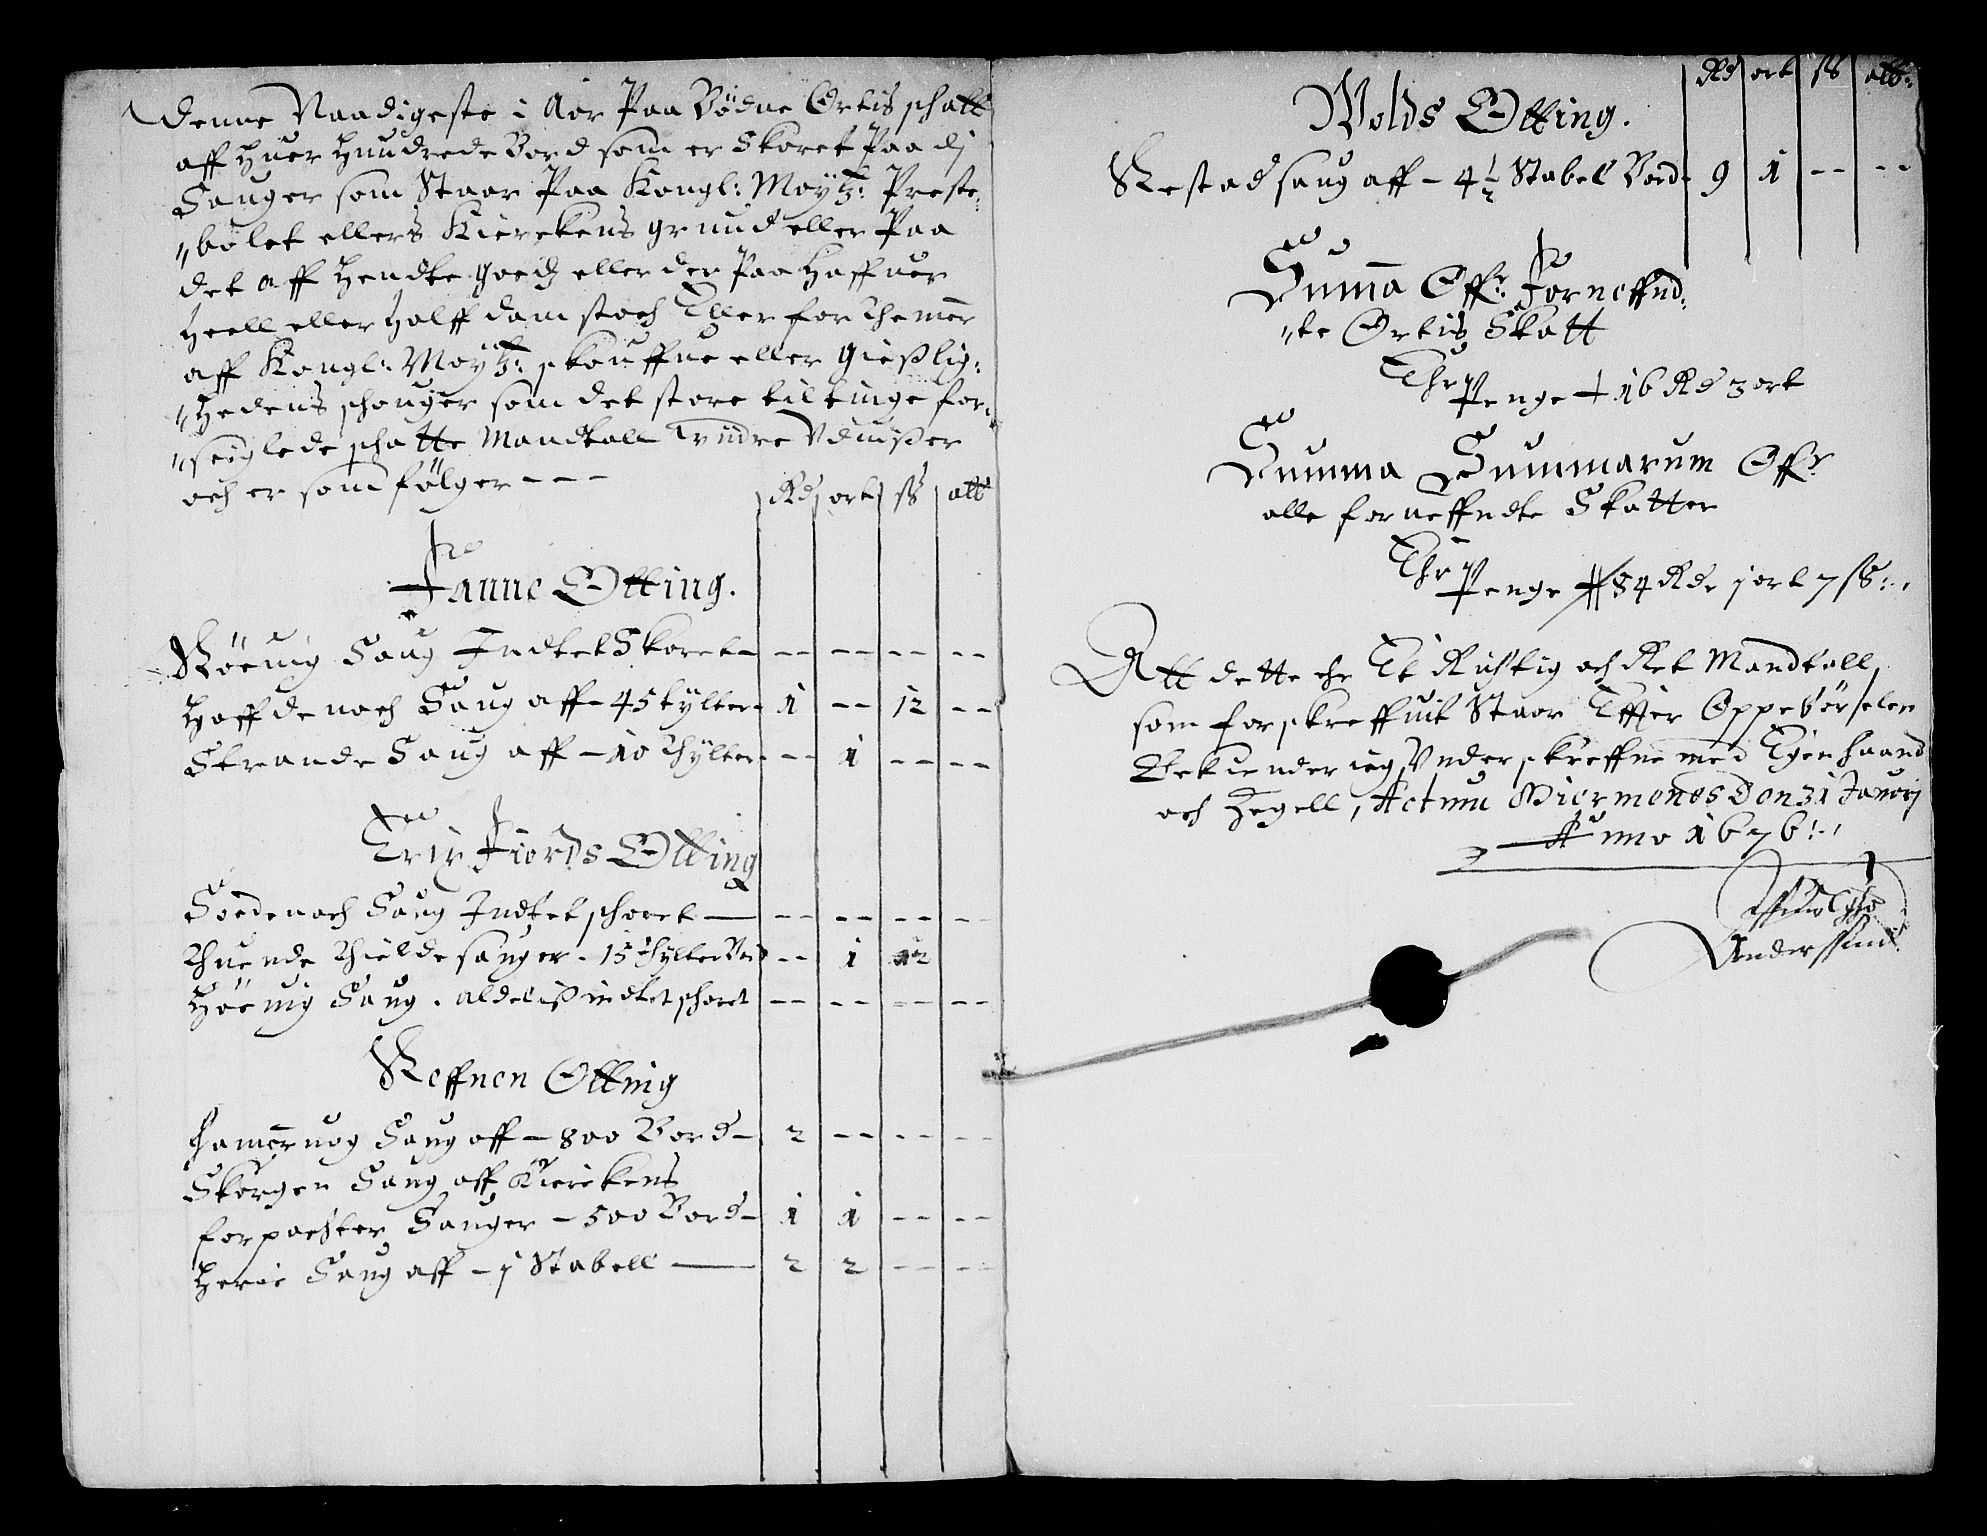 Denne Naadigeste i Aor Paa Bödne Ortis schatt
aff huer hundrede Bord som er Skoret Paa di
Sauger som Staar Paa Kongl: Moytz: Preste
"bolet ellers Kierckens grund eller Paa
det aff hendte goedz eller der Paa haffuer
heell eller halff dam stoch Eller for themer
aff Kongl: Moytz: skouffue eller gieslig:
"hedens schouger som det store til tinge for:
"seiglede schatte Mandtall vndre Vduisser
och er som fölger - - -
Rd ort ss alb
Fanne Otting.
Röeuig Saug Indtet Skoret - -- -- -- --
Haffdenoch Saug aff - 45 tylter - 1 -- 12 --
Strande Saug aff - 10 thylter - -- 1 -- --
Trix Fiords Otting
Soedenoch Saug Indtet schoret -- -- -- -- --
Thuende Thielde sauger - 15 thylter Bord -- 1 12
Höeuig Saug . aldeliss indtet schoret -- -- -- --
Reffnen Otting
Hamernog Saug aff - 800 Bord - 2 -- -- --
Skorgen Saug aff Kierckens
forpachter Sauger - 500 Bord - 1 1 -- --
Heroe Saug aff - 1 Stabell -- 2 2 -- --
Rd ort ss alb:
Wolds Otting.
Restad saug aff - 4½ Stabell Bord - 9 1 -- --
Summa Offr Forneffnd:
"te Ortis Skatt
Ehr Penge + 16 Rd 3 ort
Summa Summarum Offr
alle forneffndte Skatter
Ehr Penge # 84 Rdr 1 ort 7 ss:,
Att dette ehr Et Richtig och Ret Mandtall,
som forskreffuit Staar Effter Oppebörselen
Bekiender ieg Vnderskreffne med Egen haand
och Zegell, Actum Miermenes Den 31 Januarj
Anno 1676:,
Anderssøn